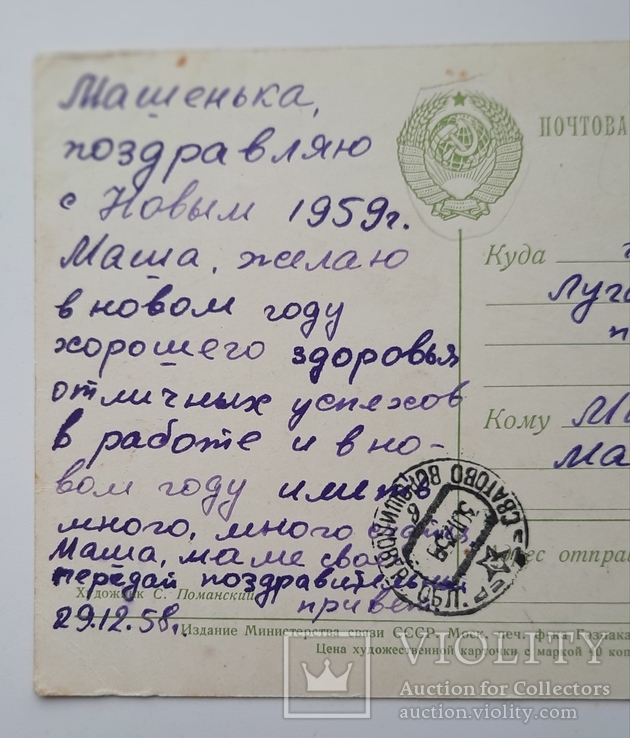 Машенька,
поздравляю
с Новым 1959г.
Маша, желаю
в новом году
хорошего здоровья
отличных успехов
в работе и в но-
вом году иметь
много, много
Маша, маме
передай поздравительный
привет
29.12.58г.
ПОЧТОВА
Куда
Луга
Кому Ми
Ма
СВАТОВО ВОРОШИЛОВ
рес отпра
Художник С. Поманский
Издание Министерства связи СССР. Моск. печ. ф-ка Гознака
Цена художественной карточки с маркой 40 коп
VIOLITY
Auction for Collectors
auction.violity.com